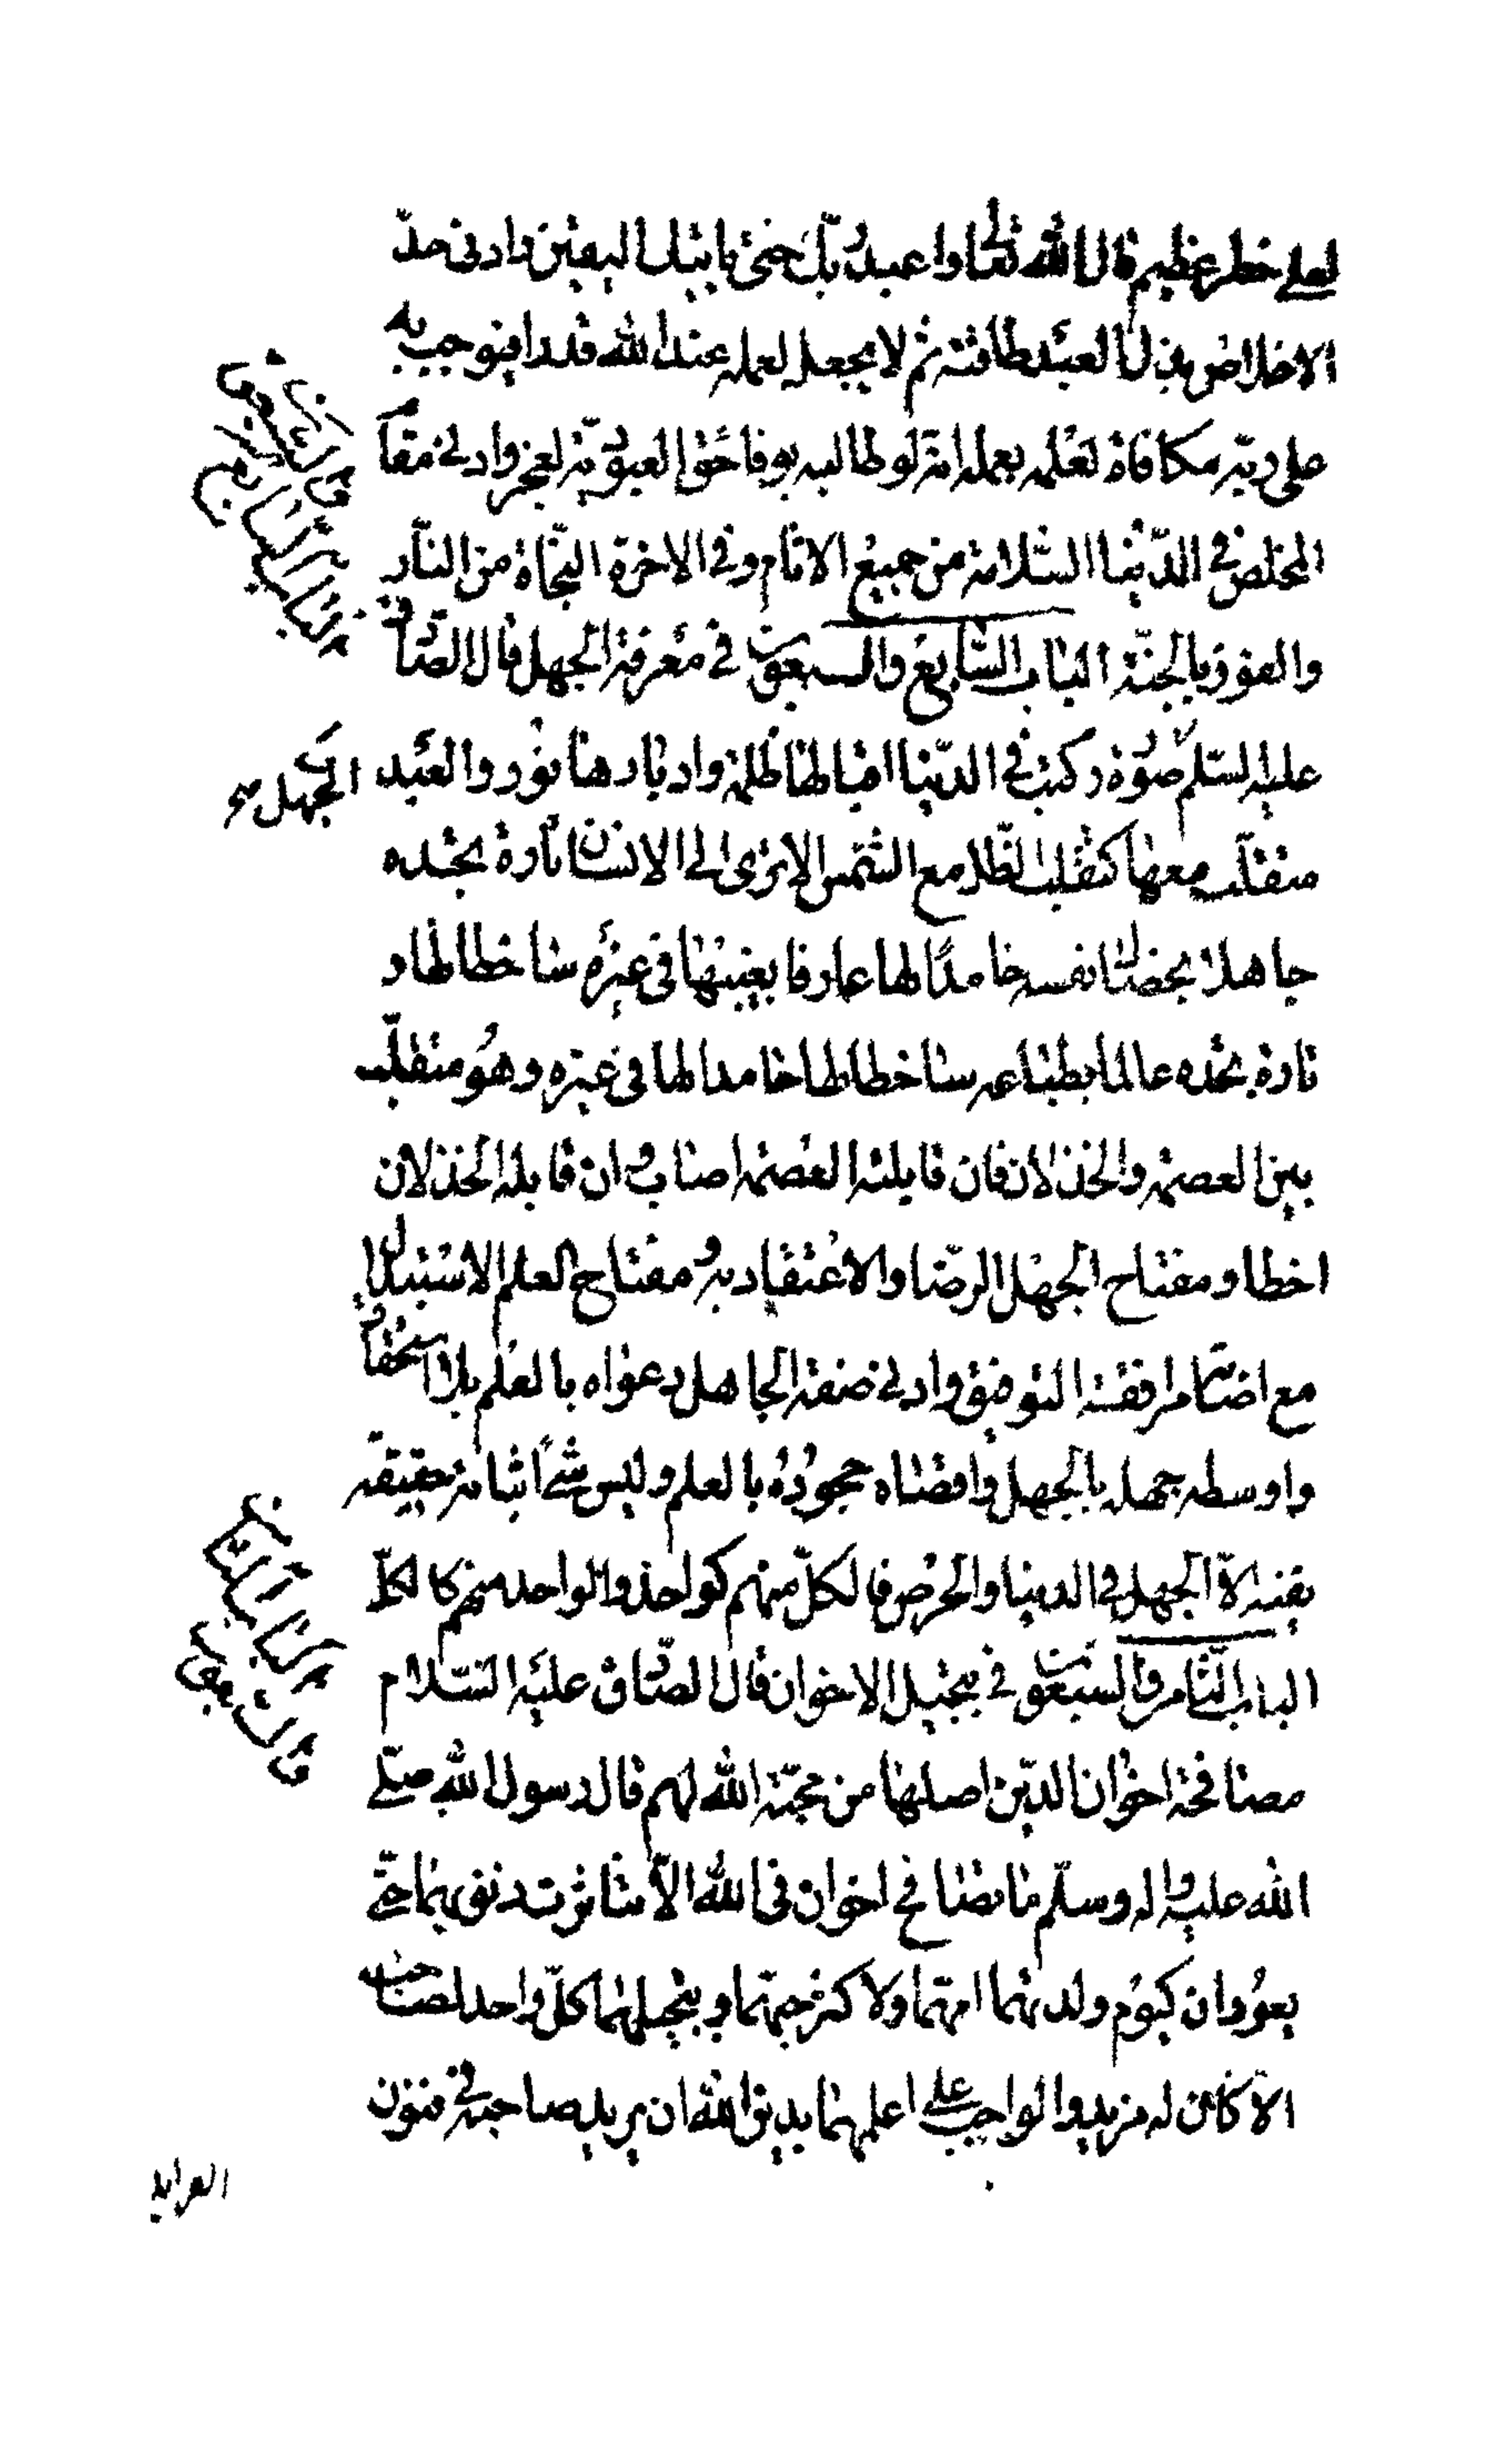 لعلى خطر عظيم قال الله تعالى واعبد ربّك حتى ياتيك اليقين وادنى حدّ
الاخلاص بذل العبد طاقته ثم لا يجعل لعمله عند الله قدرا فيوجب به
على ربّه مكافاة لعلمه بعمله انه لو طالبه بوفا حق العبوديّة لعجز وادنى مقام
المخلص في الدّنيا السّلامة من جميع الاثام وفي الاخرة النّجاة من النّار
والفوز بالجنّة الباب السّابع والسبعون في معرفة الجهل قال الصّادق
عليه السّلم صورة ركبت في الدّنيا اقبالها ظلمة وادبارها نور والعبد
الجهل
متقلّب معها كتقلب الظّل مع الشّمس الا ترى الى الانسان تارة تجده
جاهلا بخصال نفسه حامدًا لها عارفا بعيبها في غيره ساخطا لها و
تارة تجده عالما بطباعه ساخطا لها حامدا لها في غيره وهو متقلّب
بين العصمة والخذلان فان قابلته العصمة اصاب وان قابله الخذلان
اخطا ومفتاح الجهل الرضا والاعتقاد به ومفتاح العلم الاستبدال
مع اصابة مرافقة التوفيق وادنى صفة الجاهل دعواه بالعلم بلا استحقاق
واوسطه جهله بالجهل واقصاه جحوده بالعلم وليس شئ اثباته حقيقة
نفيه الا الجهل والدنيا والحرص فالكلّ منهم كواحد والواحد منهم كالكلّ
الباب الثّامن والسبعون في تبجيل الاخوان قال الصّادق عليه السّلام
مصافحة اخوان الدّين اصلها من محبّة الله لهم قال رسول الله صلّى
الله عليه واله وسلّم ما تصافح اخوان في الله الّا تناثرت ذنوبهما حتّى
يعودان كيوم ولدتهما امّهما ولا كثر حبّهما وتبجيلهما كلّ واحد لصاحبه
الّا كان له مزيد والواجب على اعلمهما بدين الله ان يزيد صاحبه في فنون
الفرايد